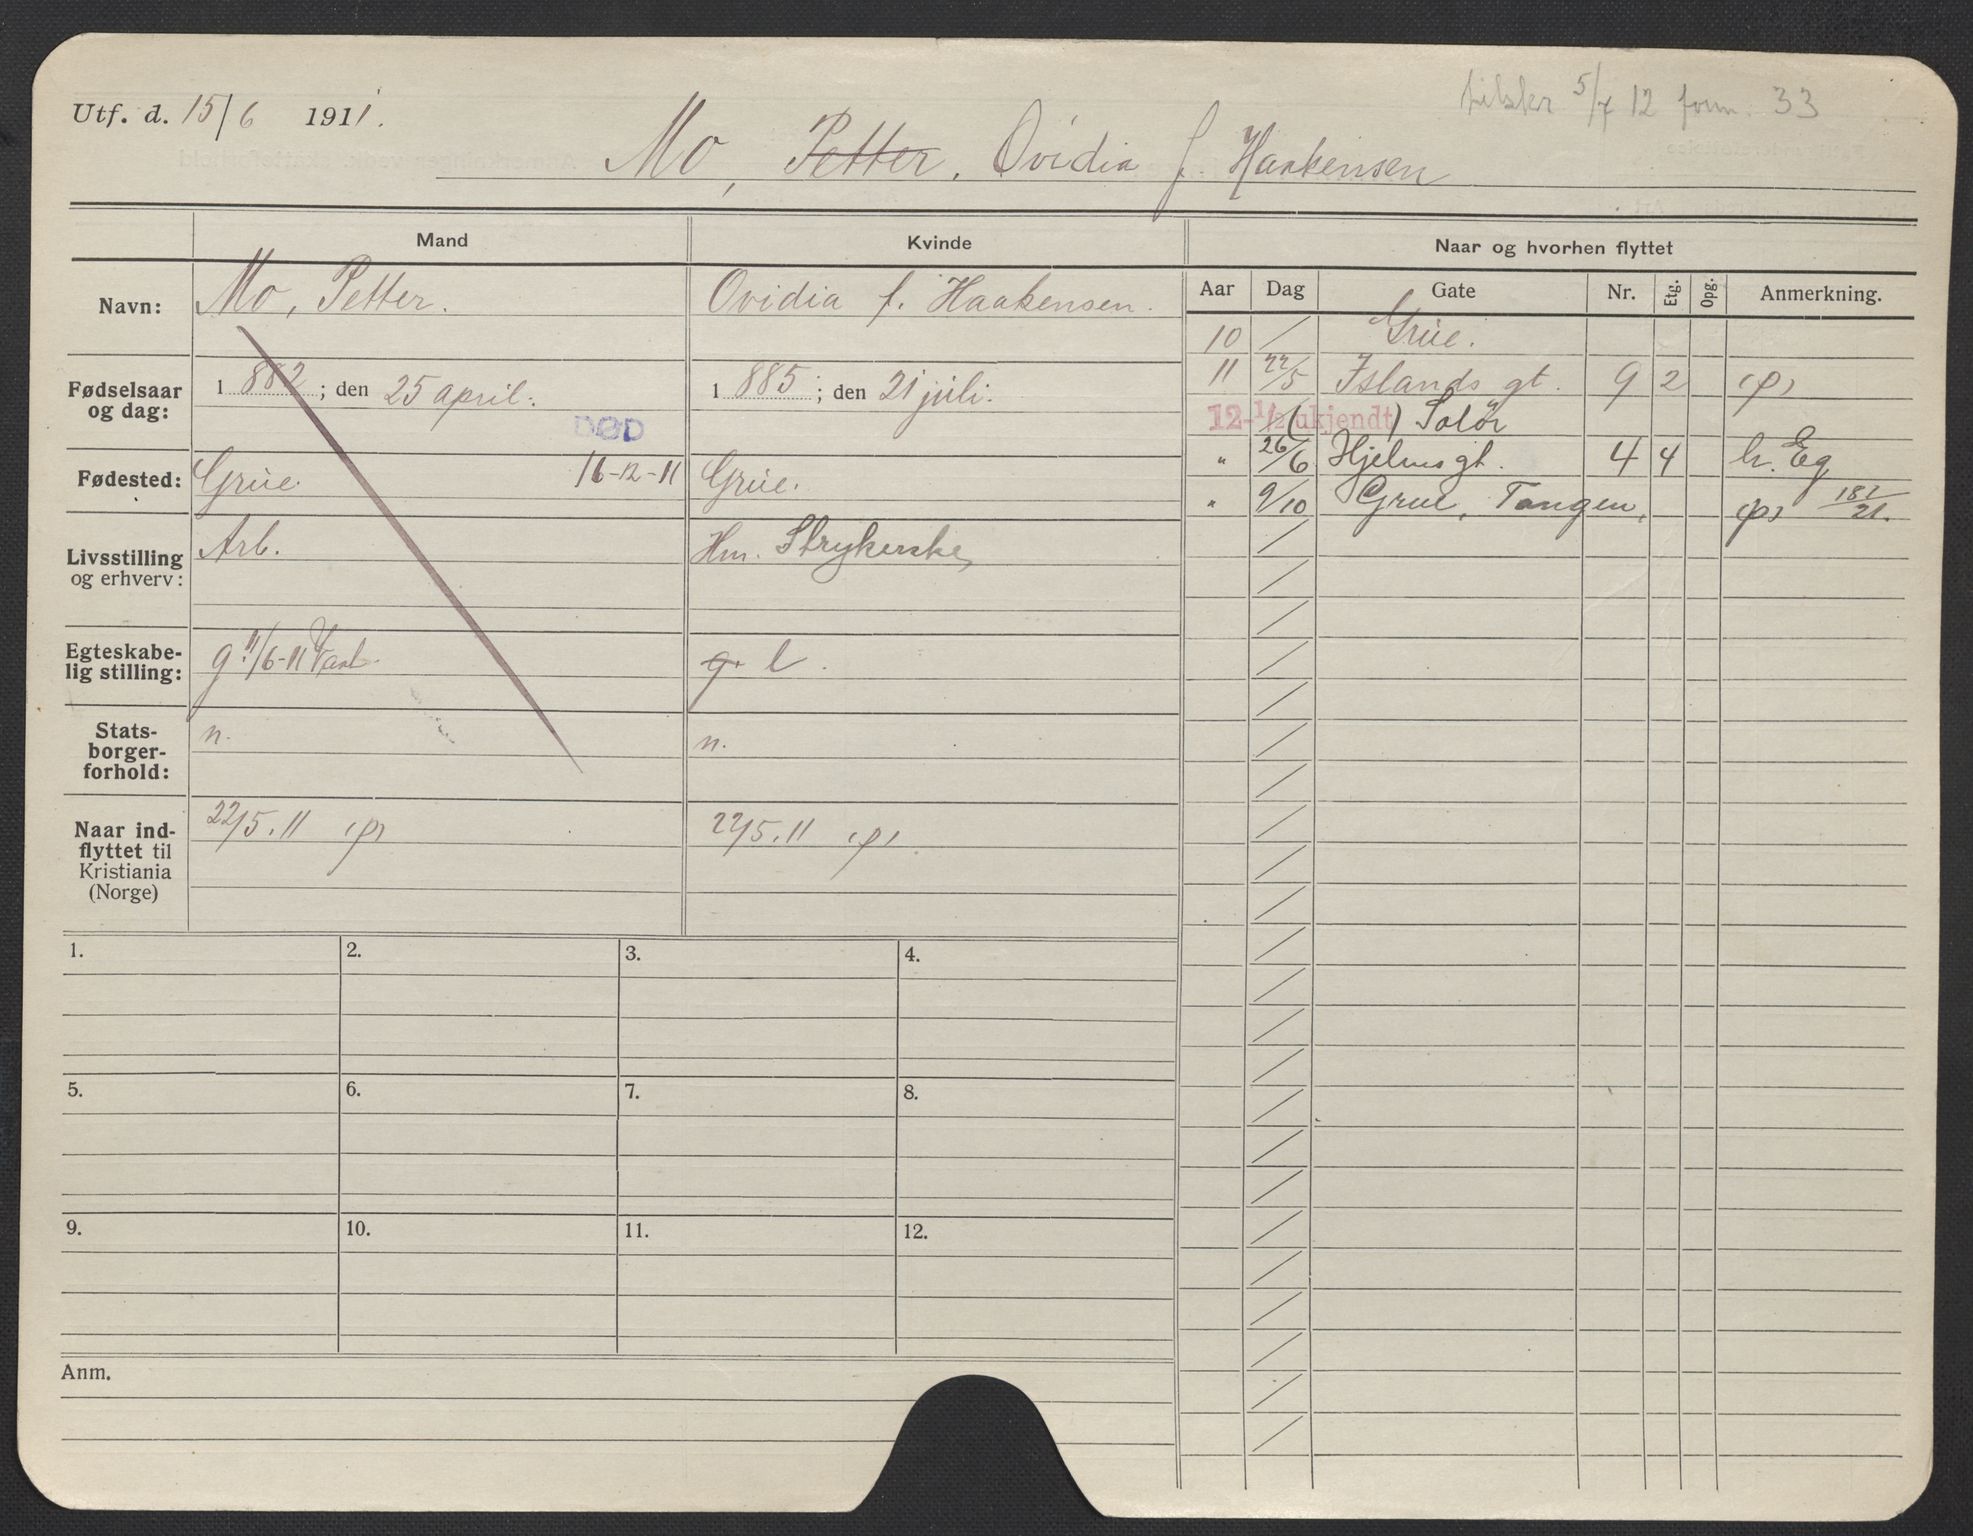 Utf. d. 15/6 1911.
tilskr 5/7 12 form. 33
Mo, Petter, Ovidia f. Haakensen
Mand
Kvinde
Naar og hvorhen flyttet
Navn:
Mo, Petter.
Ovidia f. Haakensen.
Fødselsaar og dag:
1882; den 25 april.
1885; den 21 juli.
DØD
Fødested:
Grue.
16-12-11
Grue.
Livsstilling og erhverv:
Arb.
Hm. Strykerske
Egteskabe-
lig stilling:
g. 11/6-11
g. e.
Stats-
borger-
forhold:
n.
n.
Naar ind-
flyttet til
Kristiania
(Norge)
22/5.11 (p)
22/5.11 (p)
Aar Dag Gate Nr. Etg. Opg. Anmerkning.
10 / Grue.
11 22/5 Islands gt. 9 2 (p)
12 1/2 (ukjendt) Solør
" 26/6 Hjelms gt. 4 4 h. Eg
" 9/10 Grue, Tangen, (p) 187/21.
1. 2. 3. 4.
5. 6. 7. 8.
9. 10. 11. 12.
Anm.